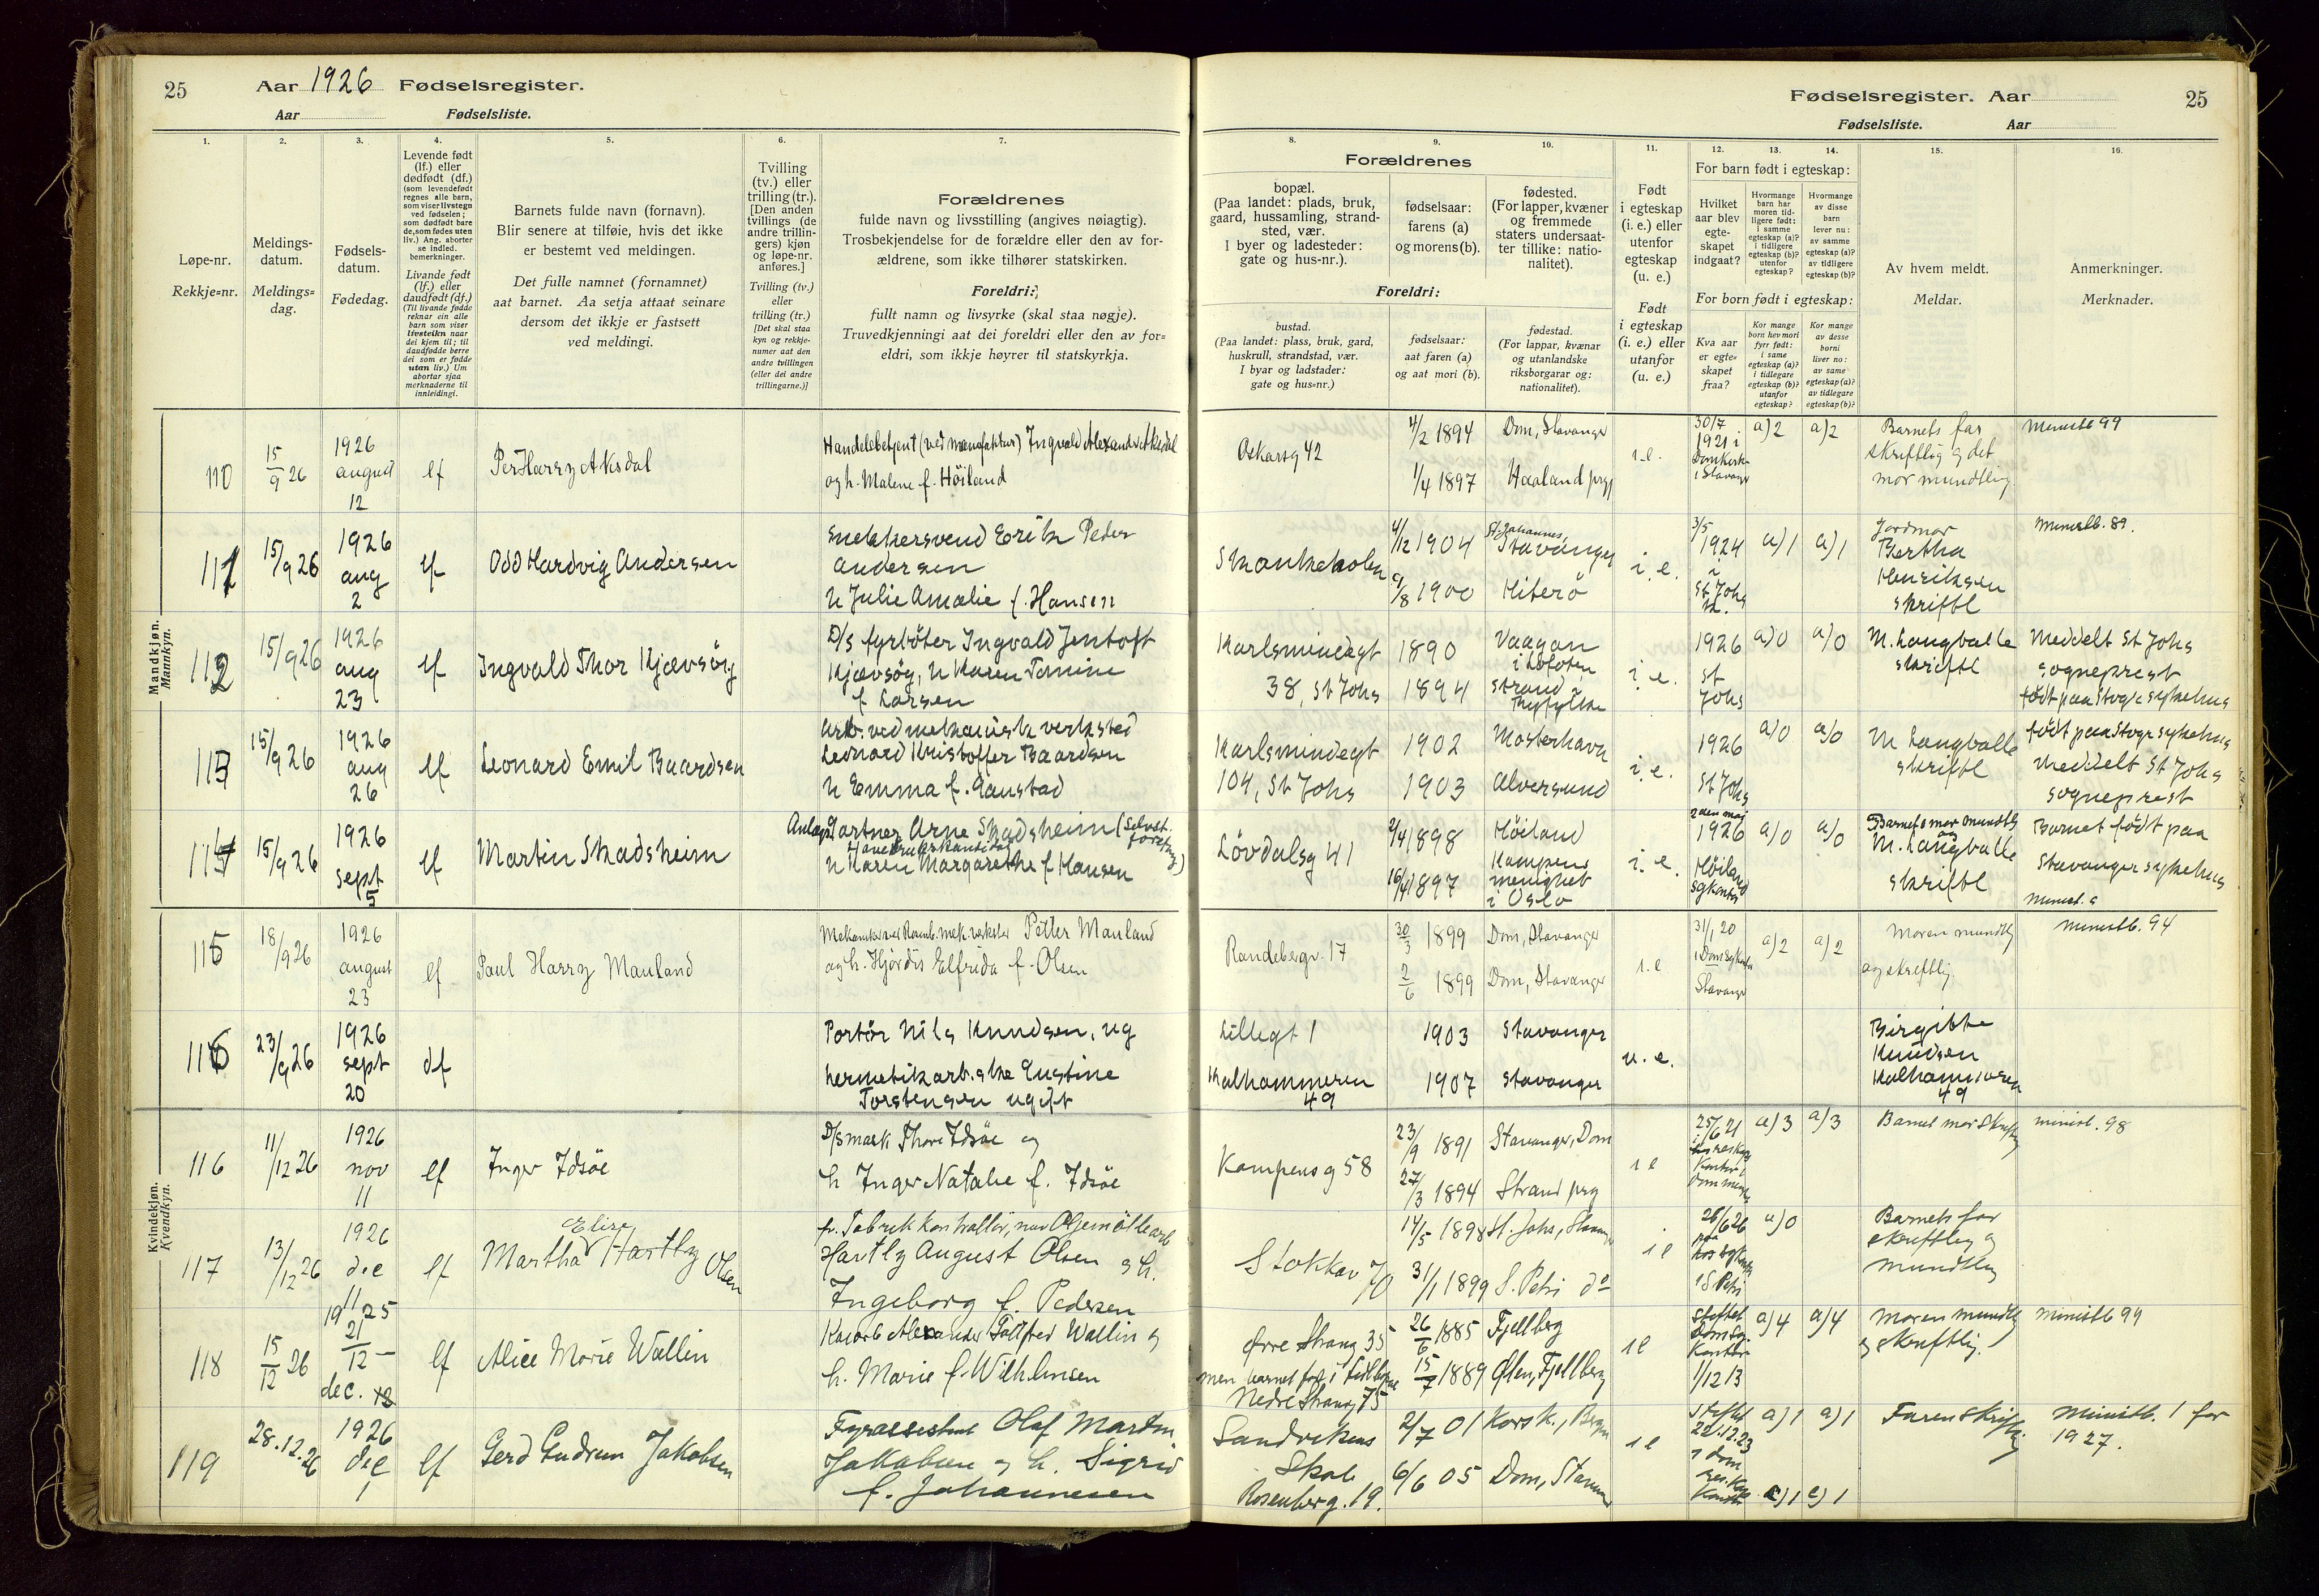 25 Aar 1926 Fødselsregister.
Aar Fødselsliste.
1. 2. 3. 4. 5. 6. 7.
Løpe-nr.
Rekkje=nr.
Meldings-
datum.
Meldings=
dag.
Fødsels-
datum.
Fødedag.
Levende født
(lf.) eller
dødfødt (df.)
(som levendefødt
regnes alle barn,
som viser livstegn
ved fødselen;
som dødfødt bare
de, som fødes uten
liv.) Ang. aborter
se indled.
bemerkninger.
Livande født
(lf.) eller
daudfødt (df.)
(Til livande fødde
reknar ein alle
barn som viser
livsteikn naar
dei kjem til; til
daudfødde berre
dei som er fødde
utan liv.) Um
abortar sjaa
merknaderne til
innleidingi.
Barnets fulde navn (fornavn).
Blir senere at tilføie, hvis det ikke
er bestemt ved meldingen.
Det fulle namnet (fornamnet)
aat barnet. Aa setja attaat seinare
dersom det ikkje er fastsett
ved meldingi.
Tvilling
(tv.) eller
trilling (tr.).
[Den anden
tvillings (de
andre trillin-
gers) kjøn
og løpe-nr.
anføres.]
Tvilling (tv.)
eller
trilling (tr.)
[Det skal staa
kyn og rekkje-
numer aat den
andre tvillingen
(eller dei andre
trillingarne.)]
Forældrenes
fulde navn og livsstilling (angives nøiagtig).
Trosbekjendelse for de forældre eller den av for-
ældrene, som ikke tilhører statskirken.
Foreldri:
fullt namn og livsyrke (skal staa nøgje).
Truvedkjenningi aat dei foreldri eller den av for=
eldri, som ikkje høyrer til statskyrkja.
Mandkjøn.
Mannkyn.
110
15/9 26
1926
august
12
lf
Per Harry Aksdal
Handelsbetjent (ved manufaktur) Ingvald Alexander Aksdal
og h. Malene f. Höiland
111
15/9 26
1926
aug
2
lf
Odd Hardvig Andersen
Snekkersvend Erik Peder
Andersen
h Julie Amalie f. Hansen
112
15/9 26
1926
aug
23
lf
Ingvald Thor Kjævsög
D/s fyrböter Ingvald Jentoft
Kjævsög, h Karen Tomine
f Larsen
113
15/9 26
1926
aug
26
lf
Leonard Emil Baardsen
Arb. ved mekanisk verksted
Leonard Kristoffer Baardsen
h Emma f. Gaustad
114
15/9 26
1926
sept
5
lf
Martin Skadsheim
Anlægsgartner Arne Skadsheim (Selvst.
h Karen Margarethe f Hansen
115
18/9 26
1926
august
23
lf
Paul Harry Mauland
Petter Mauland
og h. Hjørdis Elfrida f. Olsen
116
23/9 26
1926
sept
20
df
Portör Nils Knudsen, ug
hermetikarb.ske Gustine
Torstensen ugift
Kvindekjøn.
Kvendkyn.
116
11/12 26
1926
nov
11
lf
Inger Idsöe
D/smask Thore Idsöe og
h Inger Natalie f. Idsöe
117
13/12 26
1926
dec
11
lf
Elise
Martha Hartly Olsen
Hartly August Olsen og h.
Ingeborg f. Pedersen
118
15/12 26
1925
21/12
dec.
lf
Alice Marie Wallin
Alexander Wallin og
h. Marie f. Wilhelmsen
119
28.12.26
1926
dec
1
lf
Gerd Gudrun Jakobsen
Fyrassistent Olaf Martin
Jakobsen og h. Sigrid
f. Johannesen
Fødselsregister. Aar 25
Fødselsliste. Aar
8. 9. 10. 11. 12. 13. 14. 15. 16.
Forældrenes
bopæl.
(Paa landet: plads, bruk,
gaard, hussamling, strand-
sted, vær.
I byer og ladesteder:
gate og hus-nr.).
fødselsaar:
farens (a)
og morens (b).
fødested.
(For lapper, kvæner
og fremmede
staters undersaat-
ter tillike: natio-
nalitet).
Foreldri:
bustad.
(Paa landet: plass, bruk, gard,
huskrull, strandstad, vær.
I byar og ladstader:
gate og hus=nr.)
fødselsaar:
aat faren (a)
og aat mori (b).
fødestad.
(For lappar, kvænar
og utanlandske
riksborgarar og:
nationalitet).
Født
i egteskap
(i. e.) eller
utenfor
egteskap
(u. e.)
Født
i egteskap
(i. e.) eller
utanfor
(u. e.)
For barn født i egteskap:
Hvilket
aar blev
egte-
skapet
indgaat?
Hvormange
barn har
moren tid-
ligere født:
i samme
egteskap (a)?
i tidligere
egteskap (b)?
utenfor
egteskap?
Hvormange
av disse
barn
lever nu:
av samme
egteskap (a)?
av tidligere
egteskap (b)?
For born født i egteskap:
Kva aar
er egte=
skapet
fraa?
Kor mange
born hev mori
fyrr født:
i same
egteskap (a)?
i tidlegare
egteskap (b)?
utanfor
egteskap?
Kor mange
av desse
borni
liver no:
av same
egteskap (a)?
av tidlegare
egteskap (b)?
Av hvem meldt.
Meldar.
Anmerkninger.
Merknader.
Oskarsg 42
4/2 1894
1/4 1897
Dom, Stavanger
Haaland prgj
i.e.
30/7
1921 i
Domkirk
i Stavanger
a) 2
a) 2
Barnets far
skriftlig og det
mor mundtlig
Ministb 99
Skankeholen
4/12 1904
9/8 1900
St. Johannes,
Stavanger
Hiterö
i. e.
3/5
1924
i
St Johs
k.
a) 1
a) 1
Jordmor
Bertha
Henriksen
skriftl
Ministb. 89.
Karlsmindegt
38, St Johs
1890
1894
Vaagan
i Lofoten
Strand i
Ryfylke
i. e.
1926
St
Johs
a) 0
a) 0
M. Langballe
skriftl
Meddelt St Johs
sogneprest
født paa Stvgr sykehus
Karlsmindegt
104, St Johs
1902
1903
Mosterhavn
Alversund
i. e.
1926
St Johs
a) 0
a) 0
M Langballe
skriftl
født paa Stvgr sykehus
Meddelt St Johs
sogneprest
Lövdalsg 41
2/4 1898
16/4 1897
Höiland
Kampens
menighet
i Oslo
i. e.
2den mai
1926
Höiland
a) 0
a) 0
Barnets mor mundtlig
og
M. Langballe
skriftl
Barnet födt paa
Stavanger sykehus
Randebergv. 17
30/3 1899
2/6 1899
Dom, Stavanger
Dom, Stavanger
i.e
31/1 20
Stavanger
a) 2
a) 2
Moren mundtlig
og skriftlig
Ministb. 94
Lillegt 1
Kalhammeren
49
1903
1907
Stavanger
Stavanger
u. e.
Birgitte
Knudsen
Kalhammeren
49
Kampensg 58
23/9 1891
27/3 1894
Stavanger, Dom
Strand prg
i e
25/6 21
a) 3
a) 3
Barnets mor skriftlig
ministb. 98
Stokkav 70
17/5 1898
31/1 1899
St. Johs, Stavanger
S. Petri do
i e
26/6 26
i S. Petri
a) 0
Barnets far
skriftlig og
mundtlig
Øvre Strang 35
Nedre Strang 75
26/6 1885
15/7 1889
Fjellberg
Ølen, Fjellberg
i e
Stiftet
Kontor
1/12 13
a) 4
a) 4
Moren mundtlig
og skriftlig.
Ministb 99
Sandvikens
Skole
Rosenberg. 19.
2/7 01
6/6 05
Korsk., Bergen
Dom, Stavanger
i e
Stiftet
22.12.23
i dom
a) 1
a) 1
Faren skriftlig
Ministb. 1 for
1927.